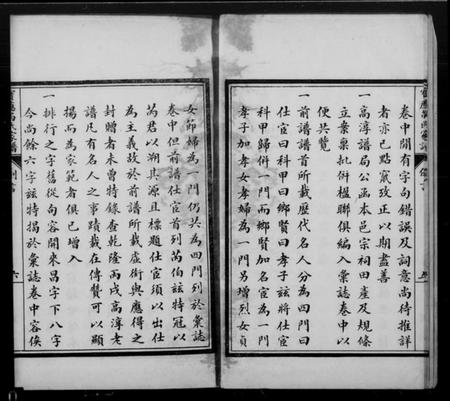 卷中間有字句錯誤及詞意尚待推詳
者亦已點竄改正以期盡善
一高淳譜局公函本邑宗祠田產及規條
立案稟批併楹聯俱編入彙誌卷中以
便共覽
一前譜譜首所載歷代名人分為四門曰
仕宦曰科甲曰鄉賢曰孝子茲將仕宦
科甲歸併一門而鄉賢加名宦為一門
孝子加孝女孝婦為一門另增烈女貞
女節婦為一門仍共為四門列於彙誌
卷中但前譜仕宦首列芮伯茲特冠以
芮君以溯其源且標題仕宦須以出仕
為主義故於前譜所載虛銜與應得之
封贈者未曾特錄查乾隆丙戌高淳老
譜凡有名人之事蹟載在傳贊可以顯
揚而為家範者俱已增入
一排行之字舊從向容開來昌字下八字
今尚餘六字茲特揭於彙誌卷中容俟